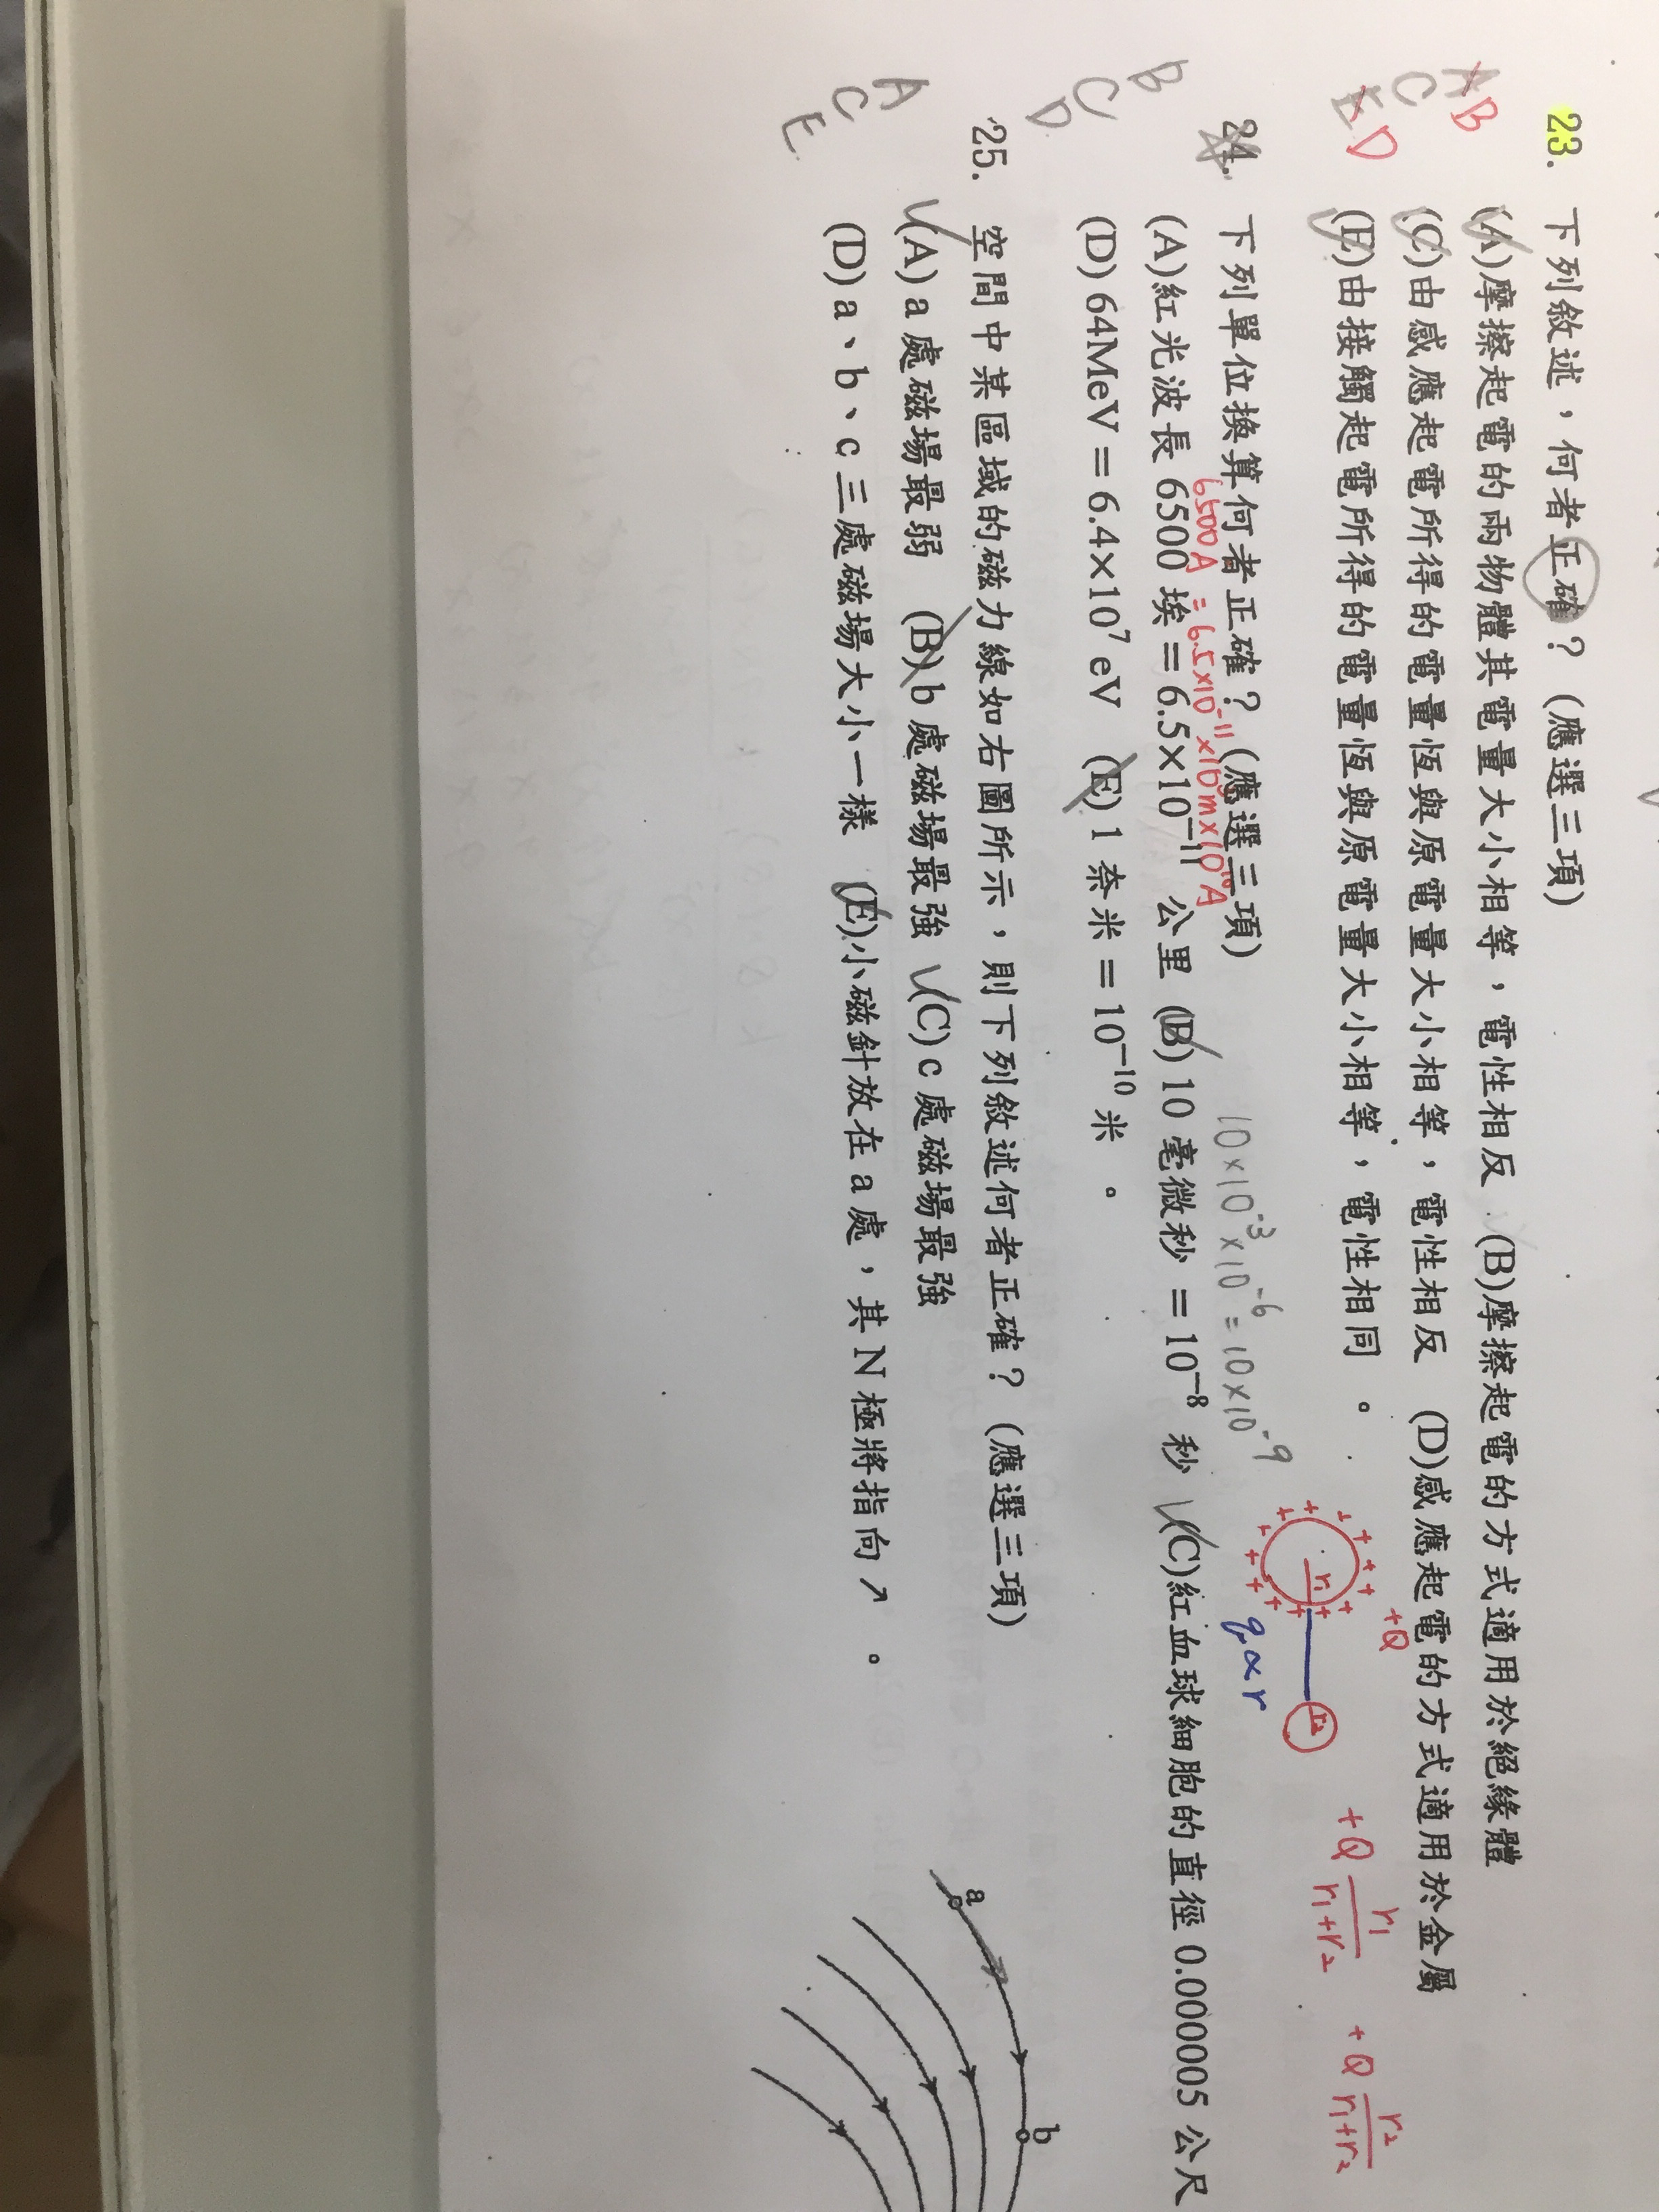 23. 下列敘述，何者正確？(應選三項)
A B
(A)摩擦起電的兩物體其電量大小相等，電性相反 (B)摩擦起電的方式適用於絕緣體
C
(C)由感應起電所得的電量恆與原電量大小相等，電性相反 (D)感應起電的方式適用於金屬
E D
(E)由接觸起電所得的電量恆與原電量大小相等，電性相同。
+Q
r₁
r₂
q∝r
+Q r₁/(r₁+r₂)
+Q r₂/(r₁+r₂)
24. 下列單位換算何者正確？(應選三項)
10×10⁻³×10⁻⁶=10×10⁻⁹
6500A = 6.5×10⁻¹¹×10³m×10¹⁰A
B
(A)紅光波長 6500 埃＝6.5×10⁻¹¹ 公里 (B)10 毫微秒＝10⁻⁸ 秒 (C)紅血球細胞的直徑 0.000005 公尺
C
D
(D)64MeV＝6.4×10⁷eV (E)1 奈米＝10⁻¹⁰ 米。
25. 空間中某區域的磁力線如右圖所示，則下列敘述何者正確？(應選三項)
A
(A)a 處磁場最弱 (B)b 處磁場最強 (C)c 處磁場最強
C
(D)a、b、c 三處磁場大小一樣 (E)小磁針放在 a 處，其 N 極將指向↗。
E
a
b